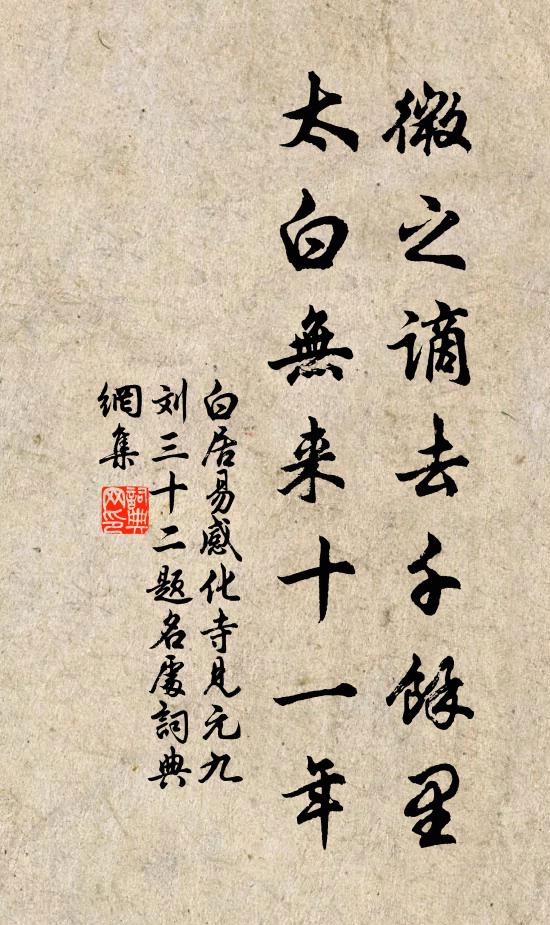 微之謫去千餘里
太白無来十一年
白居易感化寺見元九
刘三十二题名處詞典
網集
詞典
网印